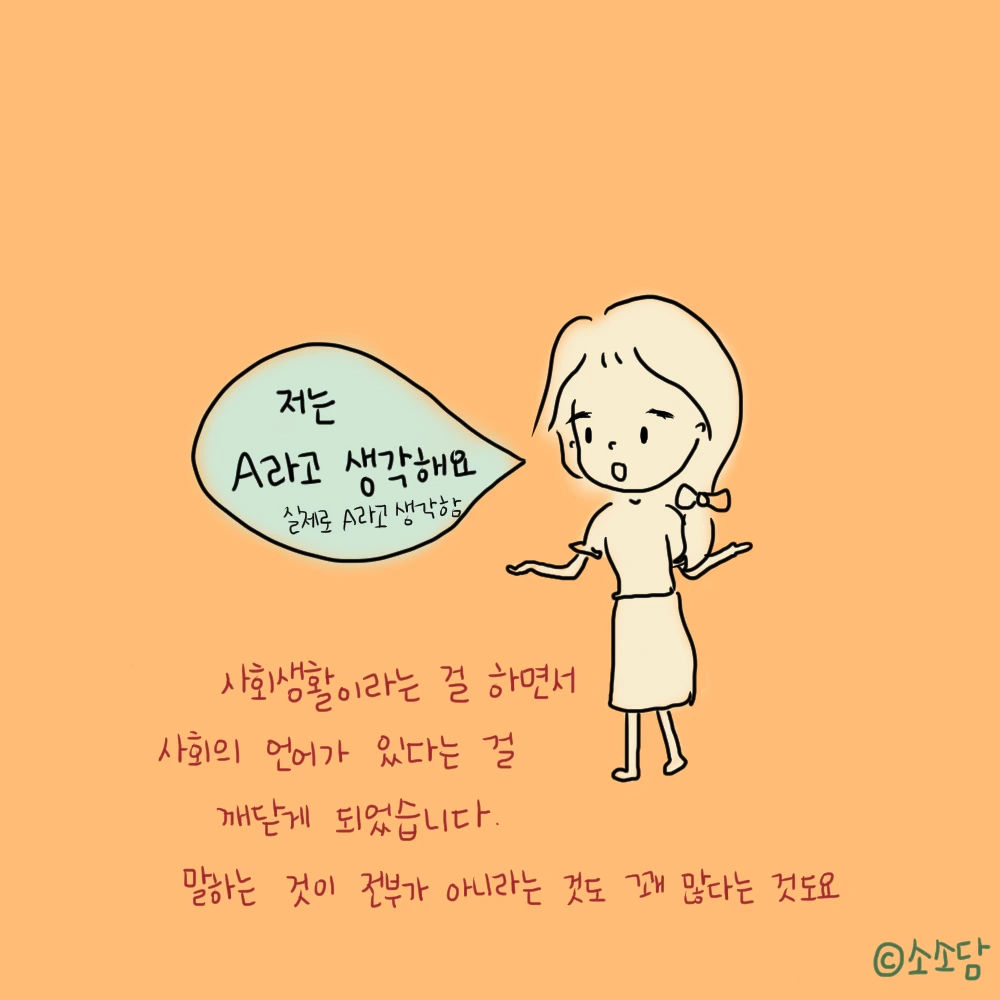 저는
A라고 생각해요
실제로 A라고 생각함
사회생활이라는 걸 하면서
사회의 언어가 있다는 걸
깨닫게 되었습니다.
말하는 것이 전부가 아니라는 것도 꽤 많다는 것도요
©소소담